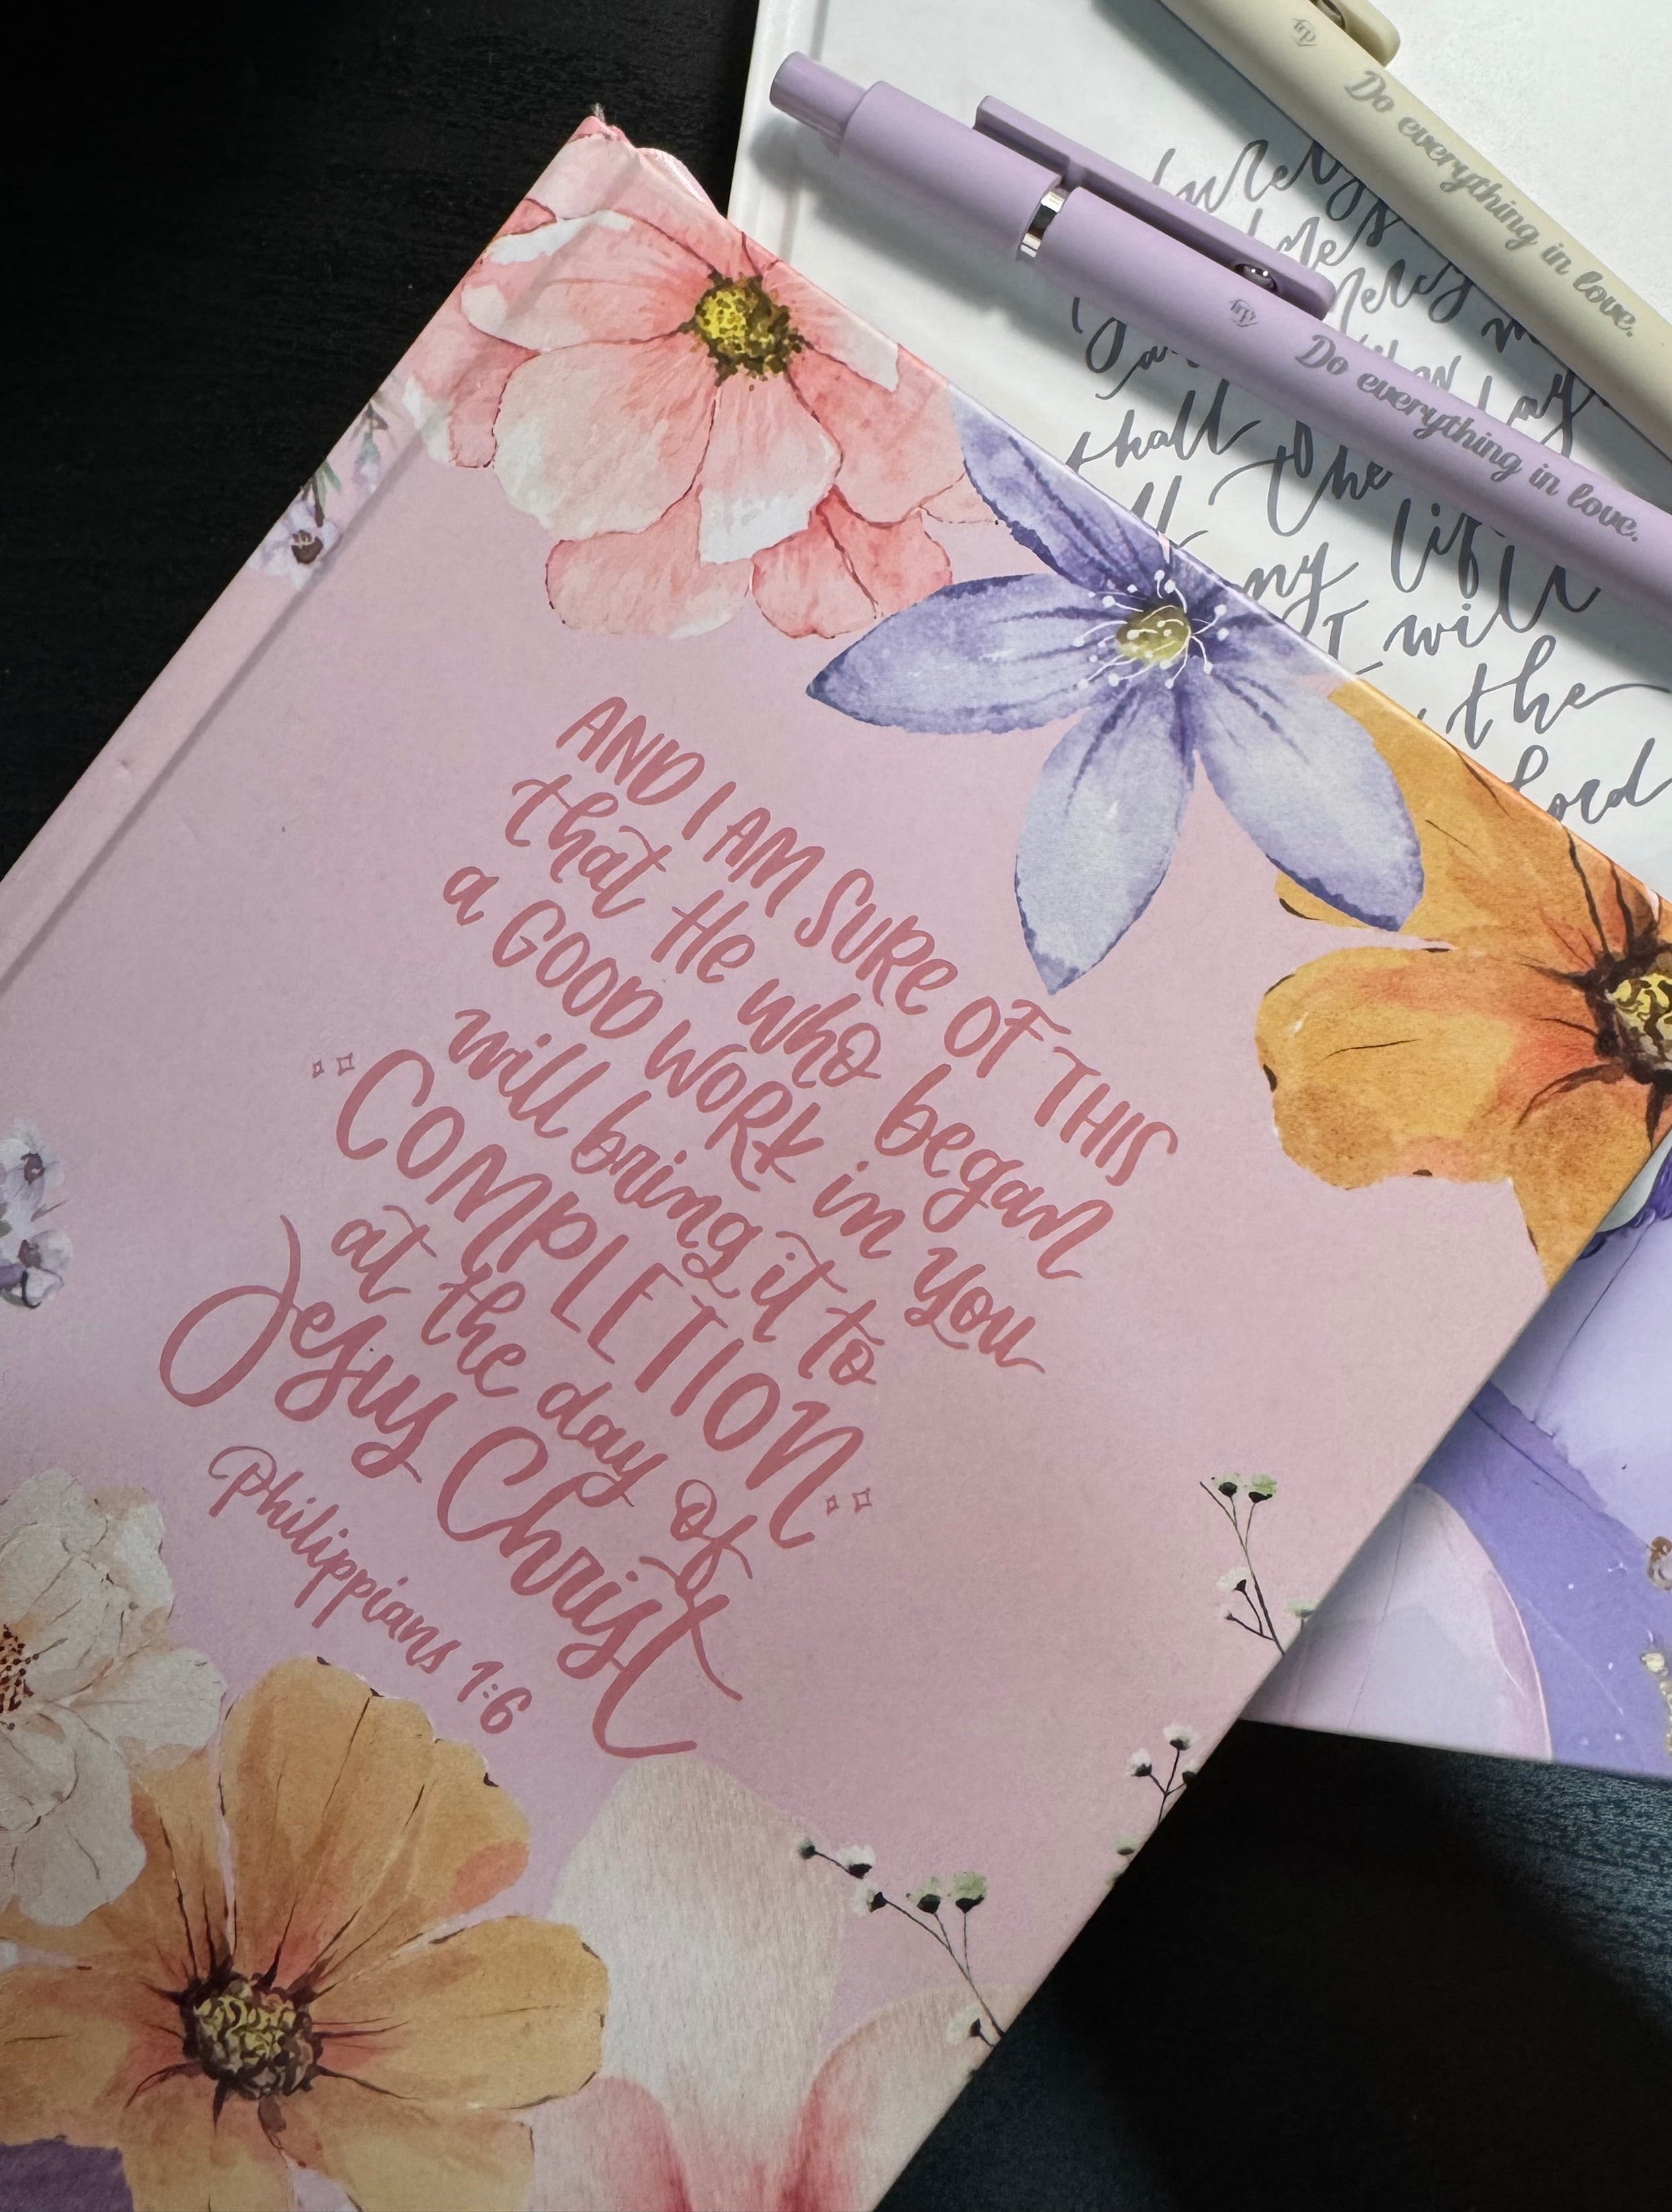 AND I AM SURE OF THIS
that He who began
a GOOD WORK in you
will bring it to
COMPLETION
at the day of
Jesus Christ
Philippians 1:6
Do everything in love.
Do everything in love.
mercy
shall
the
my life
I will
the
Lord